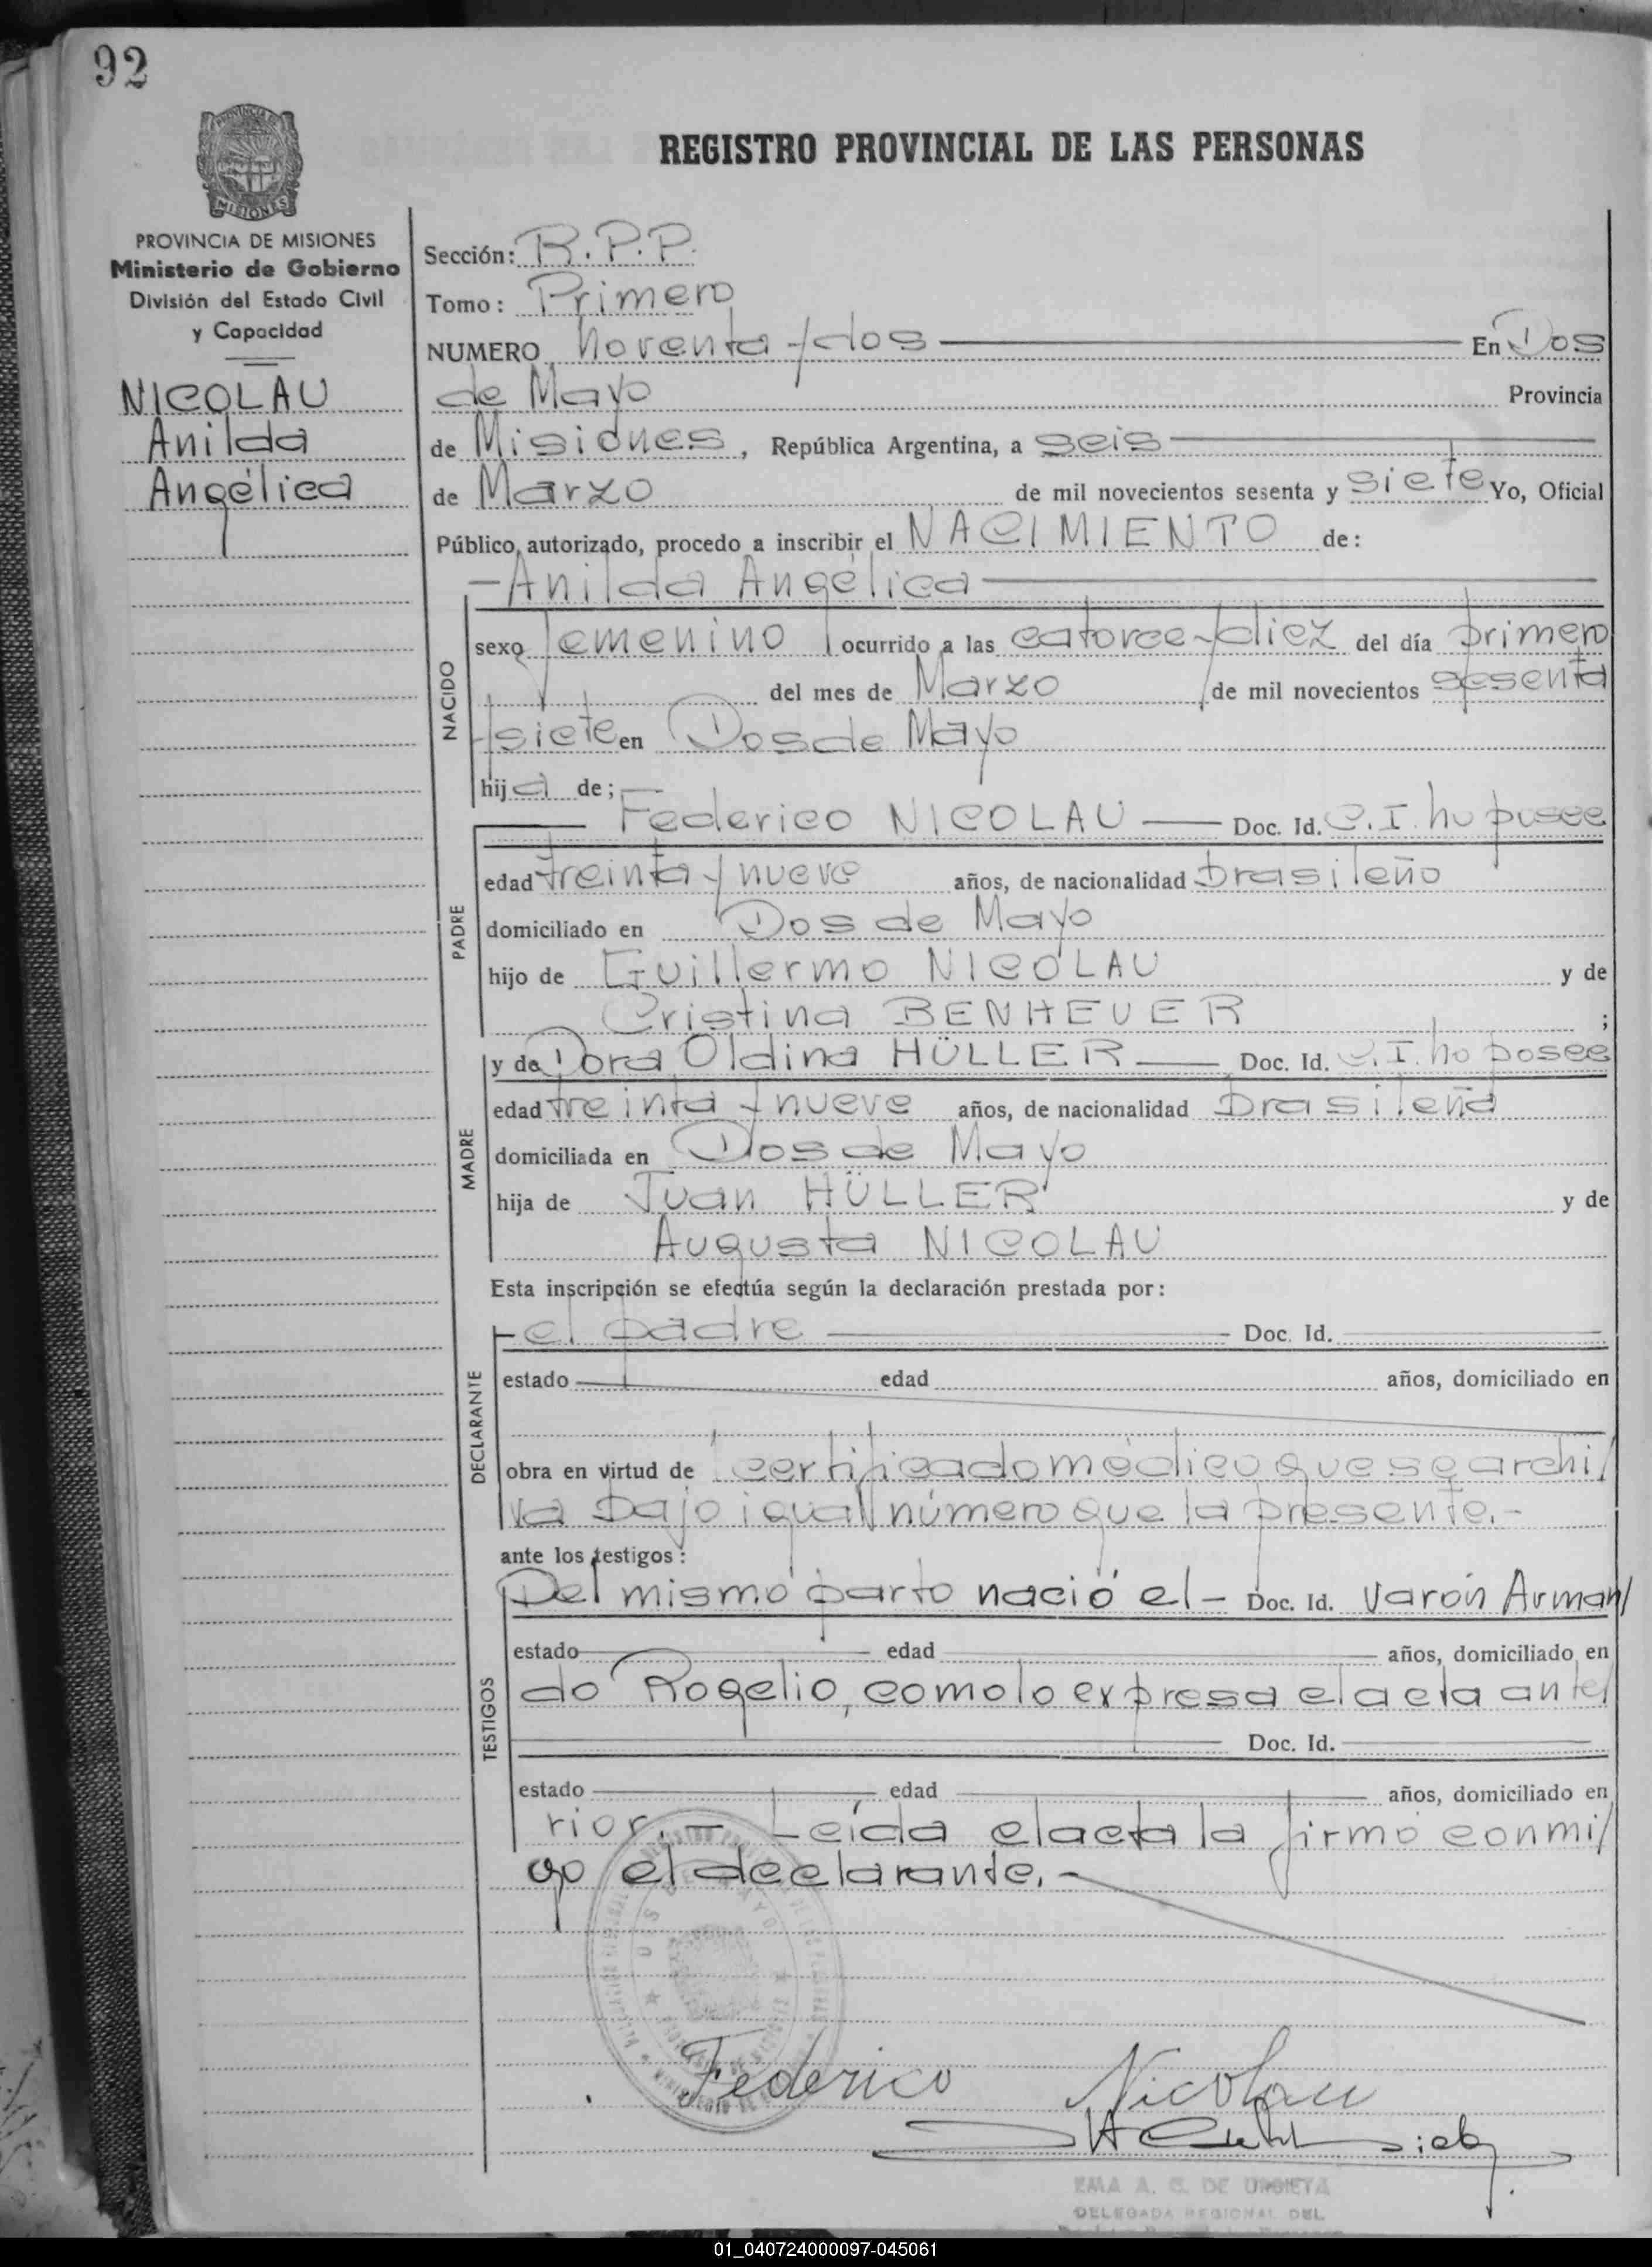 92
REGISTRO PROVINCIAL DE LAS PERSONAS
MISIONES
PROVINCIA DE MISIONES
Ministerio de Gobierno
División del Estado Civil
y Capacidad
NICOLAU
Anilda
Angélica
Sección: R.P.P.
Tomo: Primero
NUMERO Noventa y dos En Dos
de Mayo Provincia
de Misiones, República Argentina, a seis
de Marzo de mil novecientos sesenta y siete Yo, Oficial
Público autorizado, procedo a inscribir el NACIMIENTO de:
- Anilda Angélica
NACIDO
sexo femenino ocurrido a las catorce y diez del día primero
del mes de Marzo de mil novecientos sesenta
y siete en Dos de Mayo
hija de;
Federico NICOLAU Doc. Id. C.I. no posee
PADRE
edad treinta y nueve años, de nacionalidad brasileño
domiciliado en Dos de Mayo
hijo de Guillermo NICOLAU y de
Cristina BENHEUER ;
MADRE
y de Dora Oldina HÜLLER Doc. Id. C.I. no posee
edad treinta y nueve años, de nacionalidad brasileña
domiciliada en Dos de Mayo
hija de Juan HÜLLER y de
Augusta NICOLAU
Esta inscripción se efectúa según la declaración prestada por:
DECLARANTE
el padre Doc. Id.
estado edad años, domiciliado en
obra en virtud de certificado médico que se archi/
va bajo igual número que la presente.-
ante los testigos:
TESTIGOS
Del mismo parto nació el - Doc. Id. varón Arman/
estado edad años, domiciliado en
do Rogelio, como lo expresa el acta ante/
Doc. Id.
estado edad años, domiciliado en
rior.- Leída el acta la firmó conmi/
go el declarante.-
Federico Nicolau
EMA A. C. DE URBIETA
DELEGADA REGIONAL DEL
01_040724000097-045061